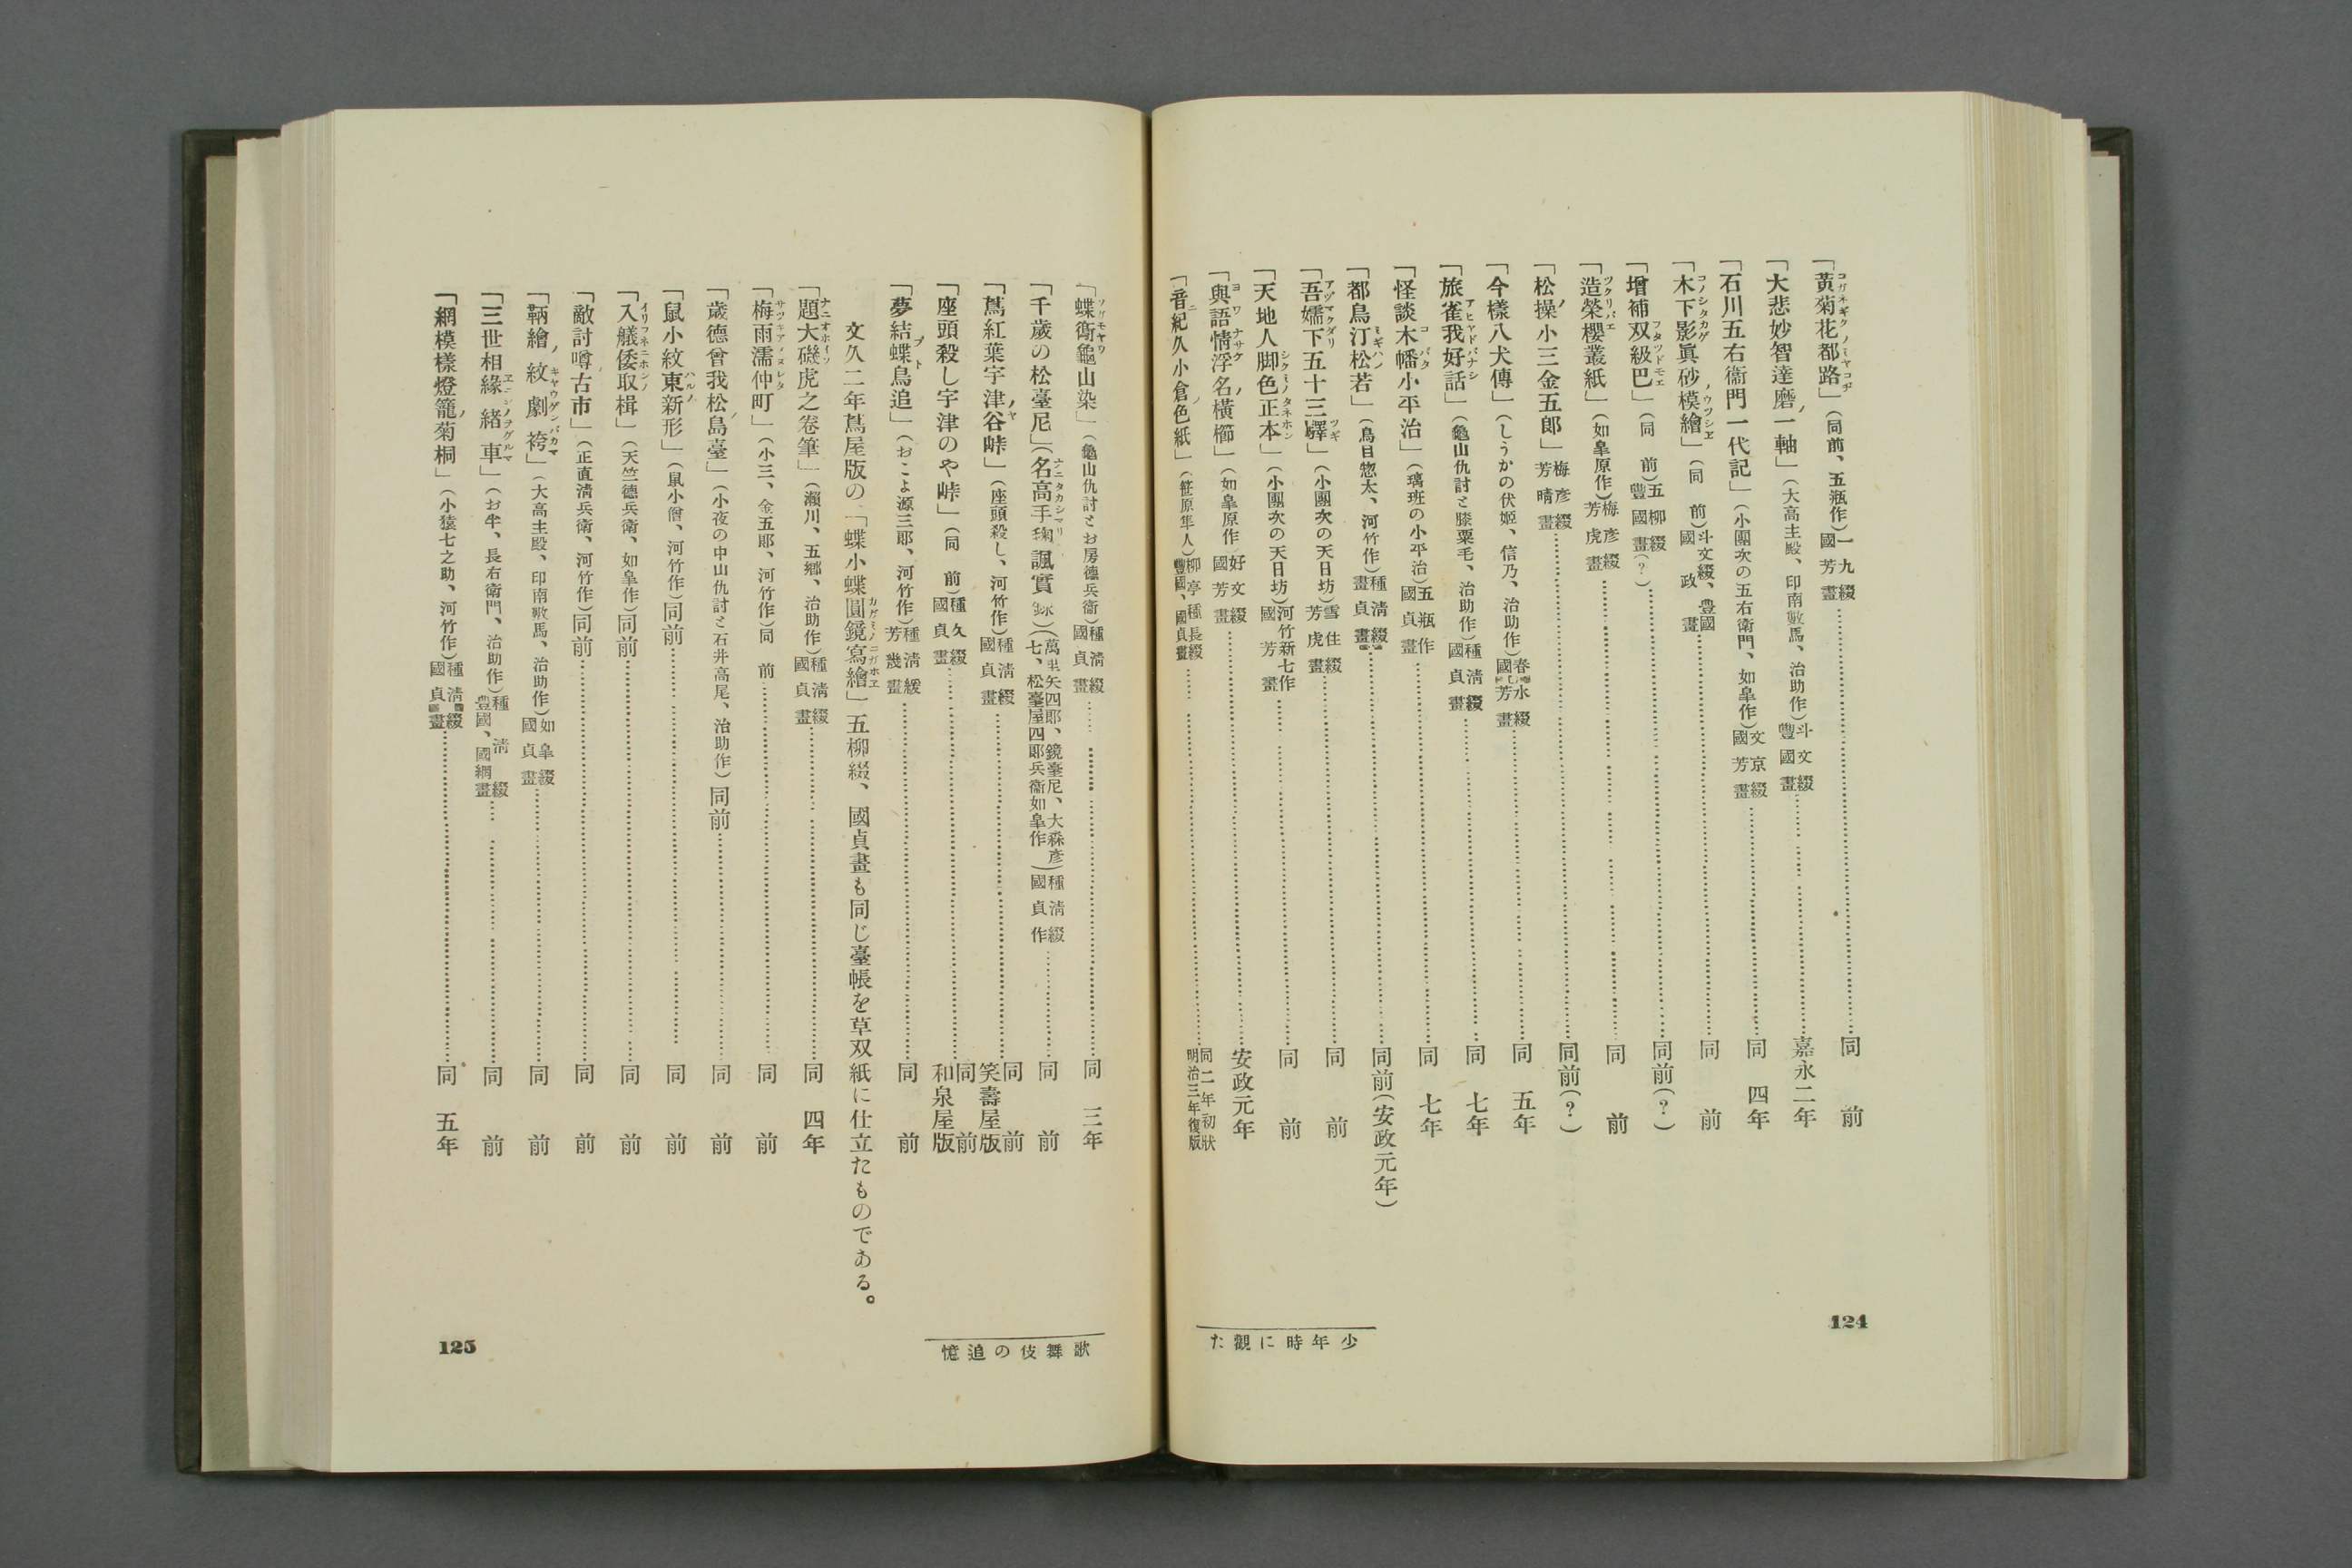 「黃菊花都路」(同前、五瓶作)一九綴 國芳畫……同前
「大悲妙智達磨一軸」(大高主殿、印南數馬、治助作)斗文綴 豐國畫……嘉永二年
「石川五右衞門一代記」(小團次の五右衞門、如皐作)文京綴 國芳畫……同四年
「木下影眞砂模繪」(同前)斗文綴、豊國 國政畫……同前
「增補双級巴」(同前)五柳綴 豐國畫(?)……同前(?)
「造榮櫻叢紙」(如皐原作)梅彦綴 芳虎畫……同前
「松操小三金五郎」梅彦綴 芳晴畫……同前(?)
「今樣八犬傳」(しうかの伏姬、信乃、治助作)春水綴 國芳畫……同五年
「旅雀我好話」(龜山仇討と膝栗毛、治助作)種淸綴 國貞畫……同七年
「怪談木幡小平治」(璃班の小平治)五瓶作 國貞畫……同七年
「都鳥汀松若」(鳥目惣太、河竹作)種淸綴 國貞畫……同前(安政元年)
「吾嬬下五十三驛」(小團次の天日坊)雪住綴 芳虎畫……同前
「天地人脚色正本」(小團次の天日坊)河竹新七作 國芳畫……同前
「與語情浮名橫櫛」(如皐原作)好文綴 國芳畫……安政元年
「音紀久小倉色紙」(笹原隼人)柳亭種長綴 豐國、國貞畫……同二年初狀 明治三年復版
124
少年時に觀た
「蝶衞龜山染」(龜山仇討とお房德兵衞)種淸綴 國貞畫……同三年
「千歲の松臺尼」(名高手鞠諷實錄)(萬里矢四郞、鏡臺尼、大森彥七、松臺屋四郞兵衞如皐作)種淸綴 國貞作……同前
「蔦紅葉宇津谷峠」(座頭殺し、河竹作)種淸綴 國貞畫……同前 笑壽屋版
「座頭殺し宇津のや峠」(同前)種久綴 國貞畫……同前 和泉屋版
「夢結蝶鳥追」(おこよ源三郞、河竹作)種淸綴 芳幾畫……同前
文久二年蔦屋版の「蝶小蝶圓鏡寫繪」五柳綴、國貞畫も同じ臺帳を草双紙に仕立たものである。
「題大磯虎之卷筆」(瀨川、五鄕、治助作)種淸綴 國貞畫……同四年
「梅雨濡仲町」(小三、金五郞、河竹作)同前……同前
「歲德曾我松島臺」(小夜の中山仇討と石井高尾、治助作)同前……同前
「鼠小紋東新形」(鼠小僧、河竹作)同前……同前
「入艤倭取楫」(天竺德兵衞、如皐作)同前……同前
「敵討噂古市」(正直淸兵衞、河竹作)同前……同前
「鞆繪紋劇袴」(大高主殿、印南數馬、治助作)如皐綴 國貞畫……同前
「三世相緣緒車」(お半、長右衞門、治助作)種淸綴 豐國、國綱畫……同前
「網模樣燈籠菊桐」(小猿七之助、河竹作)種淸綴 國貞畫……同五年
125
歌舞伎の追憶